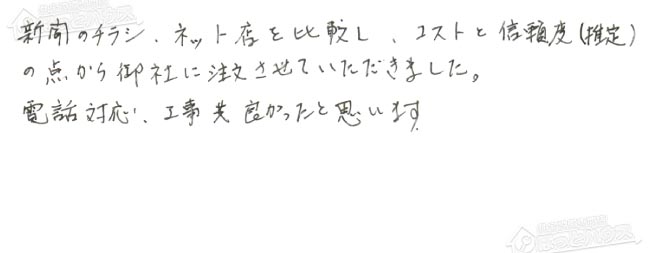 新聞のチラシ、ネット店を比較し、コストと信頼度(推定)
の点から御社に注文させていただきました。
電話対応、工事共良かったと思います